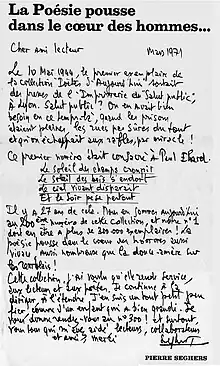 La Poésie pousse
dans le cœur des hommes...
Cher ami lecteur Mars 1971
Le 10 Mai 1944, le premier exemplaire de
la Collection Poètes d'Aujourd'hui sortait
des presses de l'Imprimerie du Salut public,
à Lyon. Salut public ? On en avait bien
besoin en ce temps-là, quand les prisons
étaient pleines, les rues peu sûres du tout
et qu'on échappait aux rafles, par miracle !
Ce premier numéro était consacré à Paul Eluard.
Le soleil des champs croupit
Le soleil des bois s'endort
Le ciel vivant disparaît
Et le soir pèse partout
Il y a 27 ans de cela. Nous en sommes aujourd'hui
au 200e numéro de cette collection, et notre n° 1
en est à plus de 300.000 exemplaires ! La
poésie pousse dans le cœur des hommes aussi
vivace, aussi nombreuse que la douce-amère sur
les
Cette collection, j'ai voulu qu'elle rende service,
aux lecteurs et aux poètes. Je continue à la
diriger, à l'étendre. J'en suis un tout petit peu
fier, comme d'un enfant qui a bien grandi. Je
vous donne rendez-vous au n° 300 ! Et surtout
vous tous qui m'avez aidé, lecteurs, collaborateurs
et amis, merci
PIERRE SEGHERS